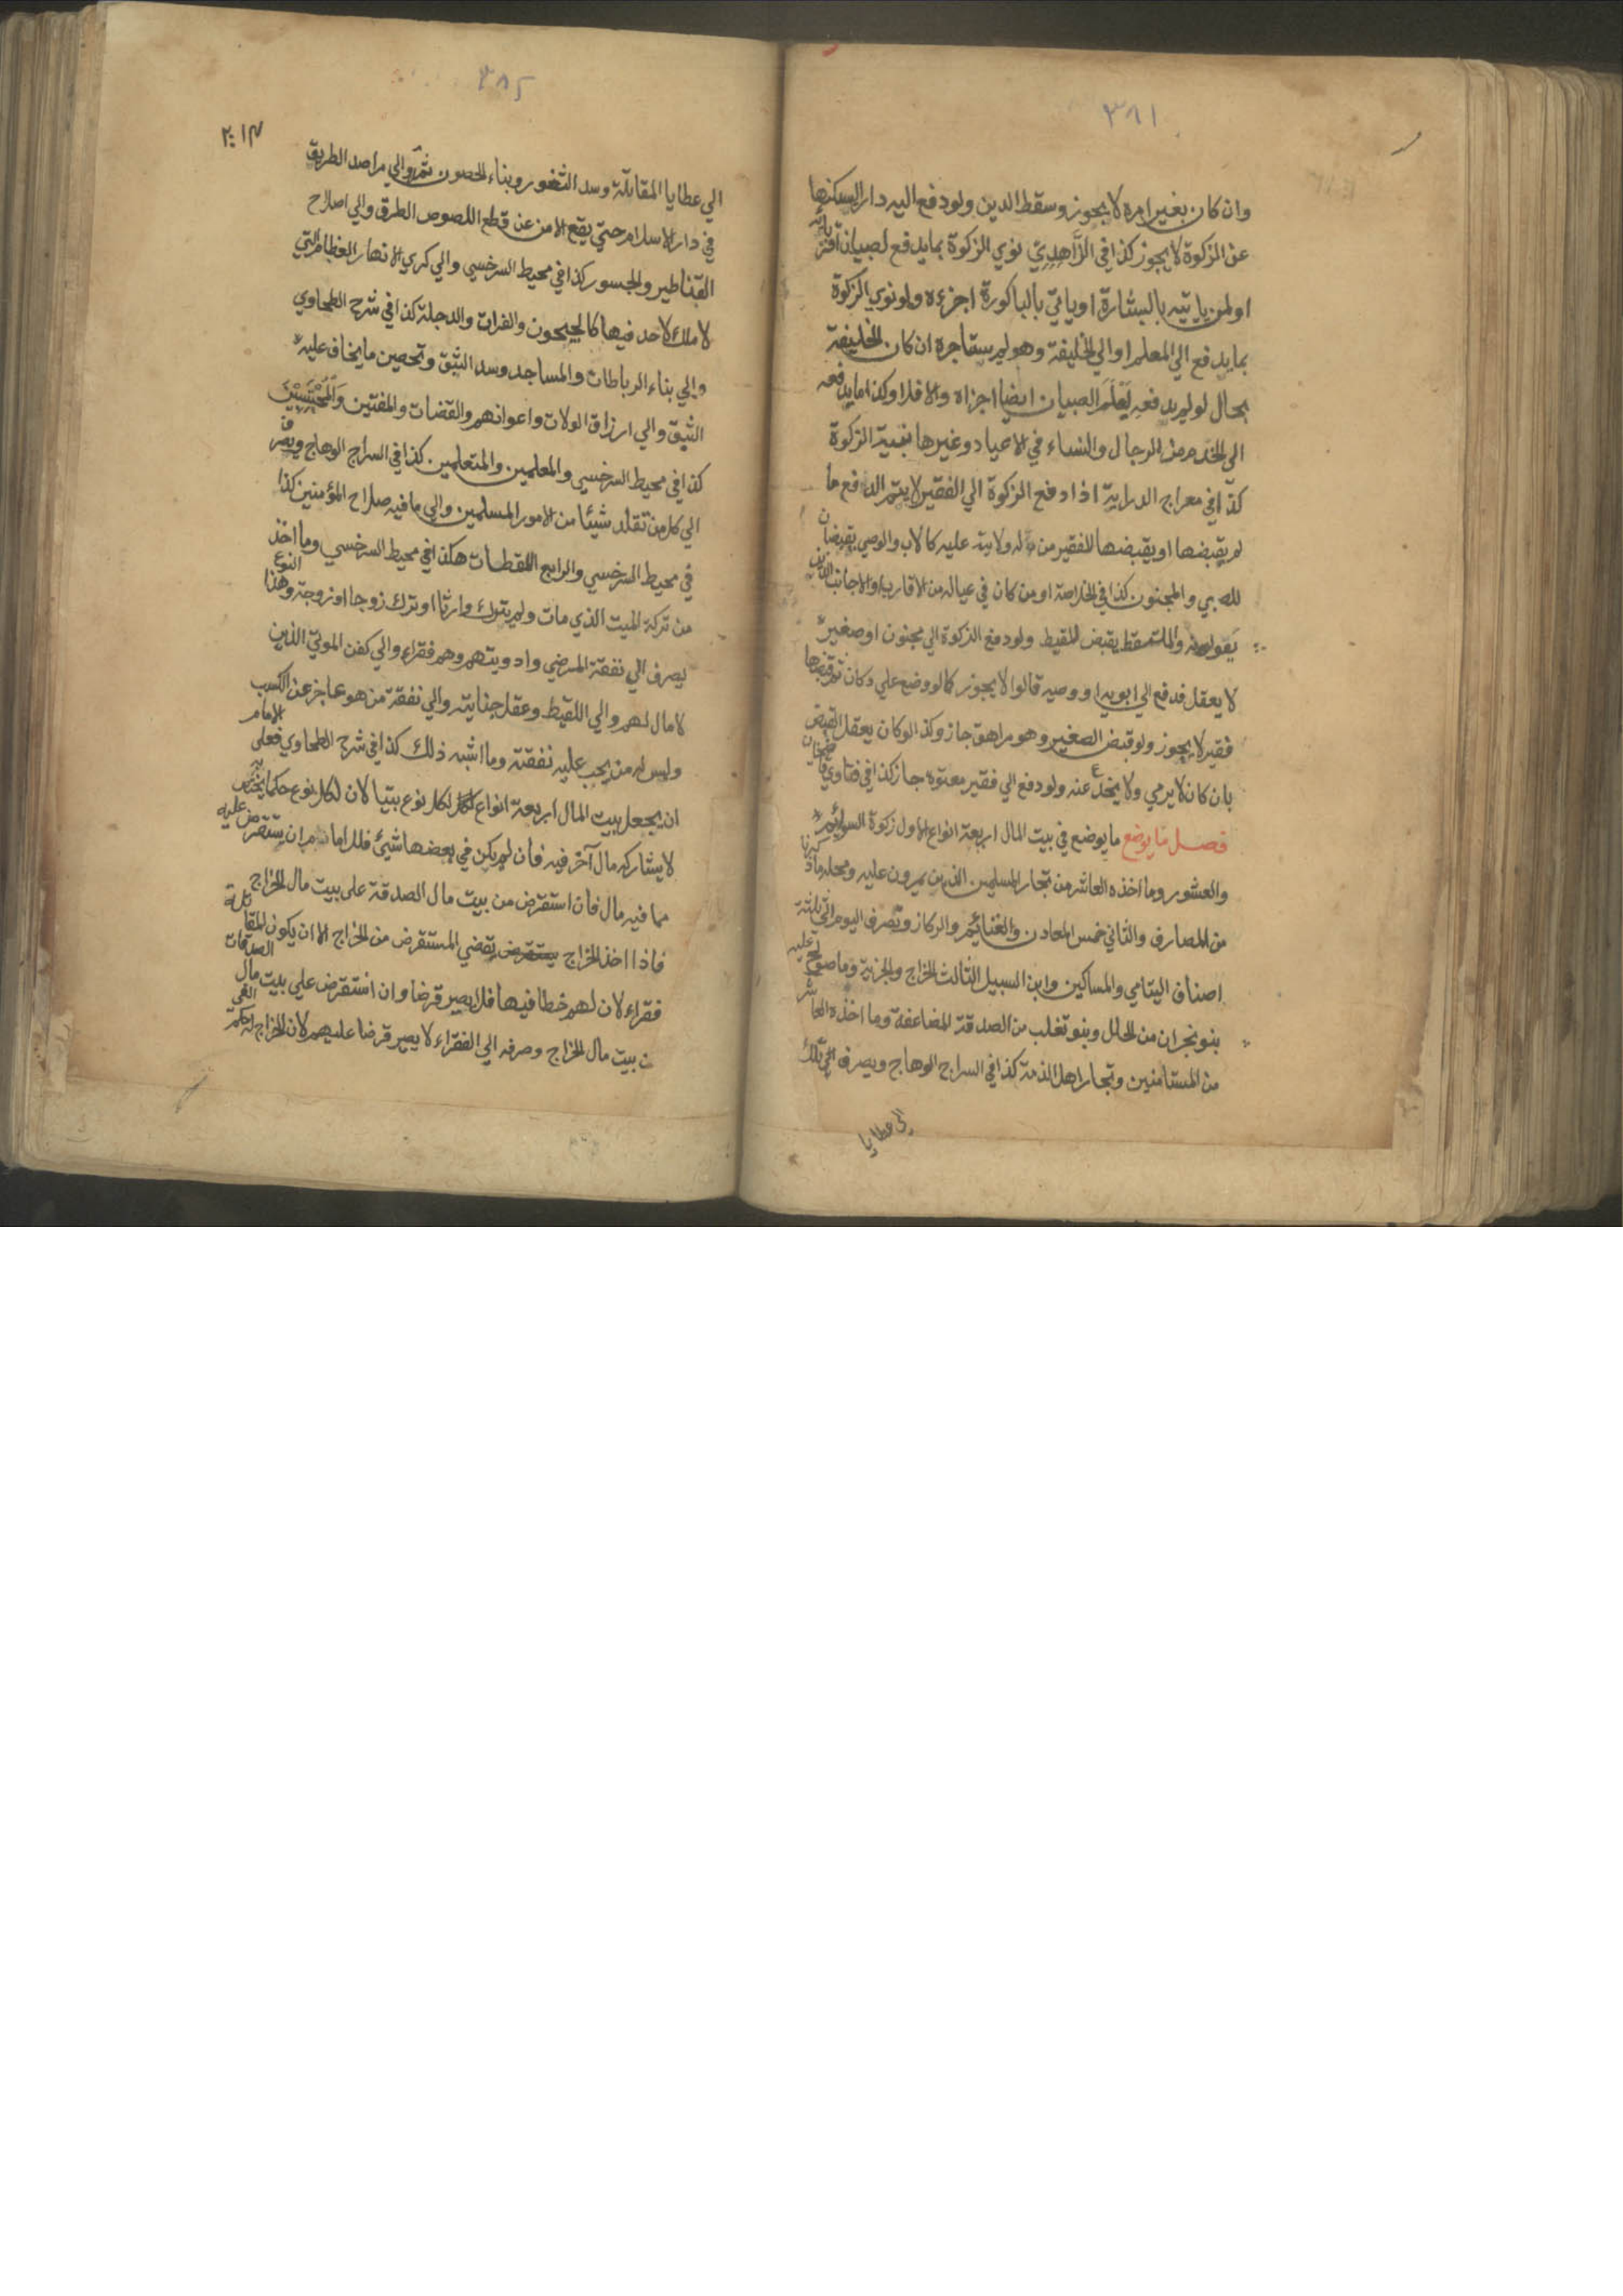 ٣٨١
وان كان بغير امره لا يجوز وسقط الدين ولو دفع اليه دارا ليسكنها
عن الزكوة لا يجوز كذا في الزَّاهِدِيّ نوي الزكوة بما يدفع لصبيان اقربائه
او لمن ياتيه بالبشارة او ياتي بالباكورة اجزءه ولو نوي الزكوة
بما يدفع الي المعلم او الي الخليفة وهو لم يستاجره ان كان الخليفة
بحال لو لم يدفعه لَعَلَّمَ الصبيان ايضا اجزاه والا فلا وكذا ما يدفعه
الي الخدم من الرجال والنساء في الاعياد وغيرها بنية الزكوة
كذا في معراج الدراية اذا دفع الزكوة الي الفقير لا يتم الدفع ما
لم يقبضها او يقبضها للفقير من له ولاية عليه كالاب والوصي يقبضان
للصبي والمجنون كذا في الخلاصة او من كان في عياله من الاقارب او الاجانب الذين
يعولونه والملتقط يقبض للقيط ولو دفع الزكوة الي مجنون او صغير
لا يعقل فدفع الي ابويه او وصيه قالوا لا يجوز كما لو وضع علي دكان ثم قبضها
فقير لا يجوز ولو قبض الصغير وهو مراهق جاز وكذا لو كان يعقل القبض
بان كان لا يرمي ولا يخدع عنه ولو دفع الي فقير معتوه جاز كذا في فتاوي قاضيخان
فصل ما يوضع ما يوضع في بيت المال اربعة انواع الاول زكوة السوائم
والعشور وما اخذه العاشر من تجار المسلمين الذين يمرون عليه ومحله ما ذكرنا
من المصارف والثاني خمس المعادن والغنائم والركاز وتصرف اليوم الي ثلثة
اصناف اليتامي والمساكين وابن السبيل الثالث الخراج والجزية وما صولح عليه
بنو نجران من الحلل وبنو تغلب من الصدقة المضاعفة وما اخذه العاشر
من المستامنين وتجار اهل الذمة كذا في السراج الوهاج ويصرف الي تلك
الي عطايا
الي عطايا المقاتلة وسد الثغور وبناء الحصون ثمه والي مراصد الطريق
في دار الاسلام حتي يقع الامن عن قطع اللصوص الطرق والي اصلاح
القناطير والجسور كذا في محيط السرخسي والي كري الانهار العظام التي
لا ملك لاحد فيها كالجيحون والفرات والدجلة كذا في شرح الطحاوي
والي بناء الرباطات والمساجد وسد البثق وتحصين ما يخاف عليه
البثق والي ارزاق الولات واعوانهم والقضات والمفتين والمحتسبين
كذا في محيط السرخسي والمعلمين والمتعلمين كذا في السراج الوهاج ويصرف
الي كل من تقلد شيئا من الامور المسلمين والي ما فيه صلاح المؤمنين كذا
في محيط السرخسي والرابع اللقطات هكذا في محيط السرخسي وما اخذ
من تركة الميت الذي مات ولم يترك وارثا او ترك زوجا او زوجة وهذا النوع
يصرف الي نفقة المرضي وادويتهم وهم فقراء والي كفن الموتي الذين
لا مال لهم والي اللقيط وعقل جنايته والي نفقة من هو عاجز عن الكسب
وليس له من يجب عليه نفقته وما اشبه ذلك كذا في شرح الطحاوي فعلي الامام
ان يجعل بيت المال اربعة انواع لكل نوع بيتا لان لكل نوع حكما يختص به
لا يشاركه مال آخر فيه فان لم يكن في بعضها شيئ فللامام ان يستقرض عليه
مما فيه مال فان استقرض من بيت مال الصدقة على بيت مال الخراج
فاذا اخذ الخراج يقضي المستقرض من الخراج الا ان يكون المقاتلة
فقراء لان لهم خطا فيها فلا يصير قرضا وان استقرض علي بيت مال الصدقات
من بيت مال الخراج وصرفه الي الفقراء لا يصير قرضا عليهم لان الخراج له حكم الفئ